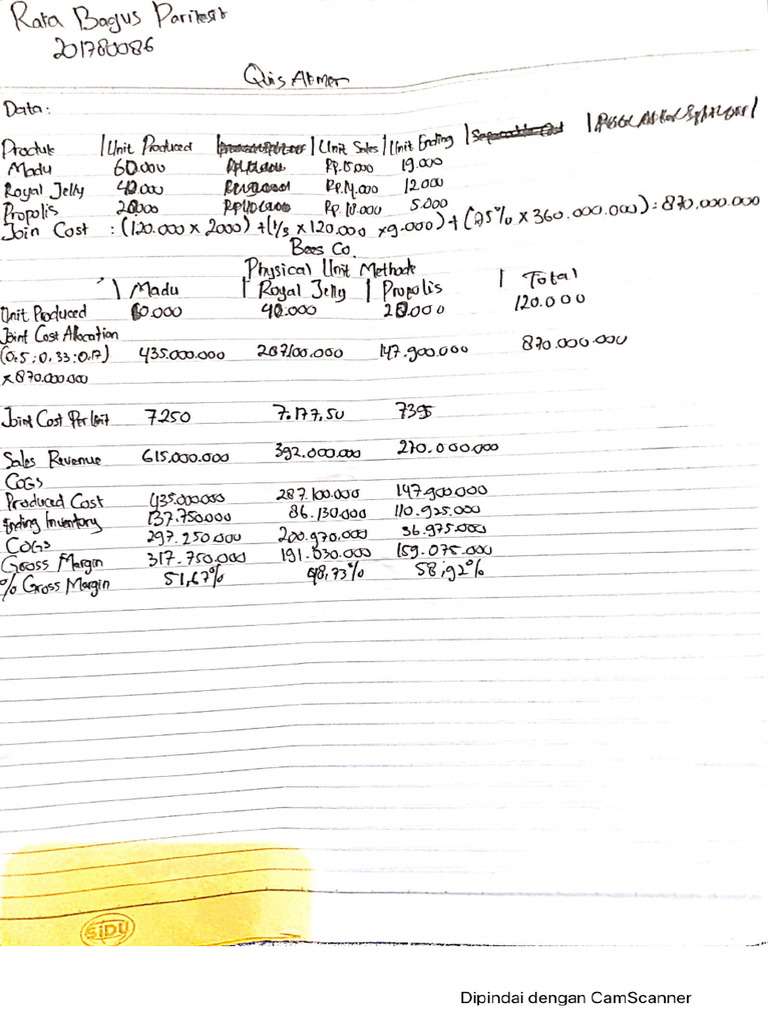 Rata Bagus Parikesit
201780086
Quis Akmen
Data:
Produk | Unit Produced | Unit Sales | Unit Ending
Madu 60.000 Rp.15.000 19.000
Royal Jelly 40.000 Rp.14.000 12.000
Propolis 20000 Rp.18.000 5.000
Join Cost : (120.000 x 2000) + (1/3 x 120.000 x 9.000) + (75% x 360.000.000) = 870.000.000
Bees Co.
Physical Unit Methode
| Madu | Royal Jelly | Propolis | Total
Unit Produced 60.000 40.000 20.000 120.000
Joint Cost Allocation
(0,5 : 0,33 : 0,17) 435.000.000 287.100.000 147.900.000 870.000.000
x 870.000.000
Joint Cost Per Unit 7.250 7.177,50 7395
Sales Revenue 615.000.000 392.000.000 270.000.000
COGS
Produced Cost 435.000.000 287.100.000 147.900.000
Ending Inventory 137.750.000 86.130.000 110.925.000
COGS 297.250.000 200.970.000 36.975.000
Gross Margin 317.750.000 191.030.000 159.075.000
% Gross Margin 51,67% 48,73% 58,92%
SIDU
Dipindai dengan CamScanner